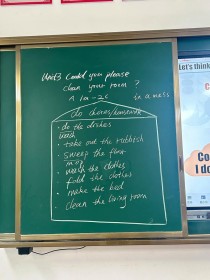 Unit3 Could you please
clean your room ?
∧ 1a-2c in a mess
do chores/housework
· do the dishes
wash
· take out the rubbish
· sweep the floor
mop
· wash the clothes
· fold the clothes
· make the bed
· clean the living room
Let's think
Co
I do